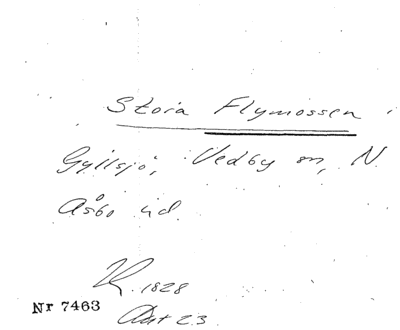 Stora Flymossen i
Gyllsjö, Vedby sn, N.
Åsbo hd.
K. 1828
Akt 23
Nr 7463